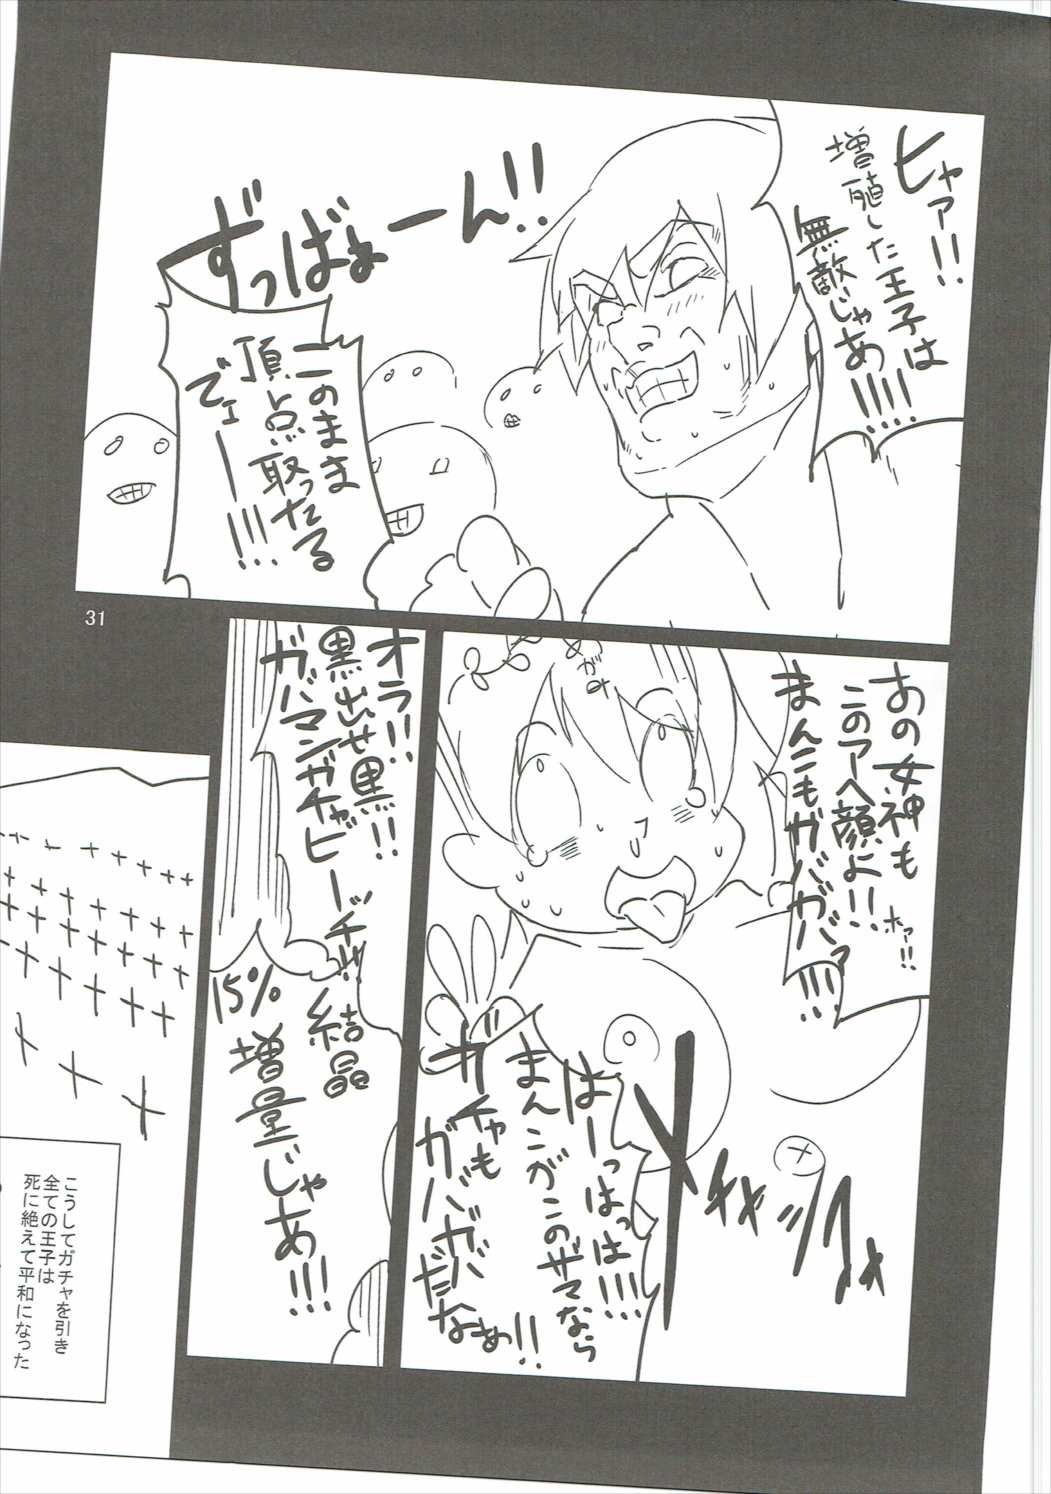 ヒャァ!!
増殖した王子は
無敵じゃあ!!!!
ずっばぁーん!!
このまま
頂点取ったる
でェー!!!
31
あの女神も
このアヘ顔よ!!
まんこもガバガバァ!!!!
ホァ!!
めがみ
メギャッ
はーっはっは!!!!
まんこがこのザマなら
ガチャも
ガバガバ
だなぁ!!
オラ!!
黒出せ黒!!
ガバマンガチャビーッチ!!
結晶
15%
増量じゃ
あ!!!
こうしてガチャを引き
全ての王子は
死に絶えて平和になった